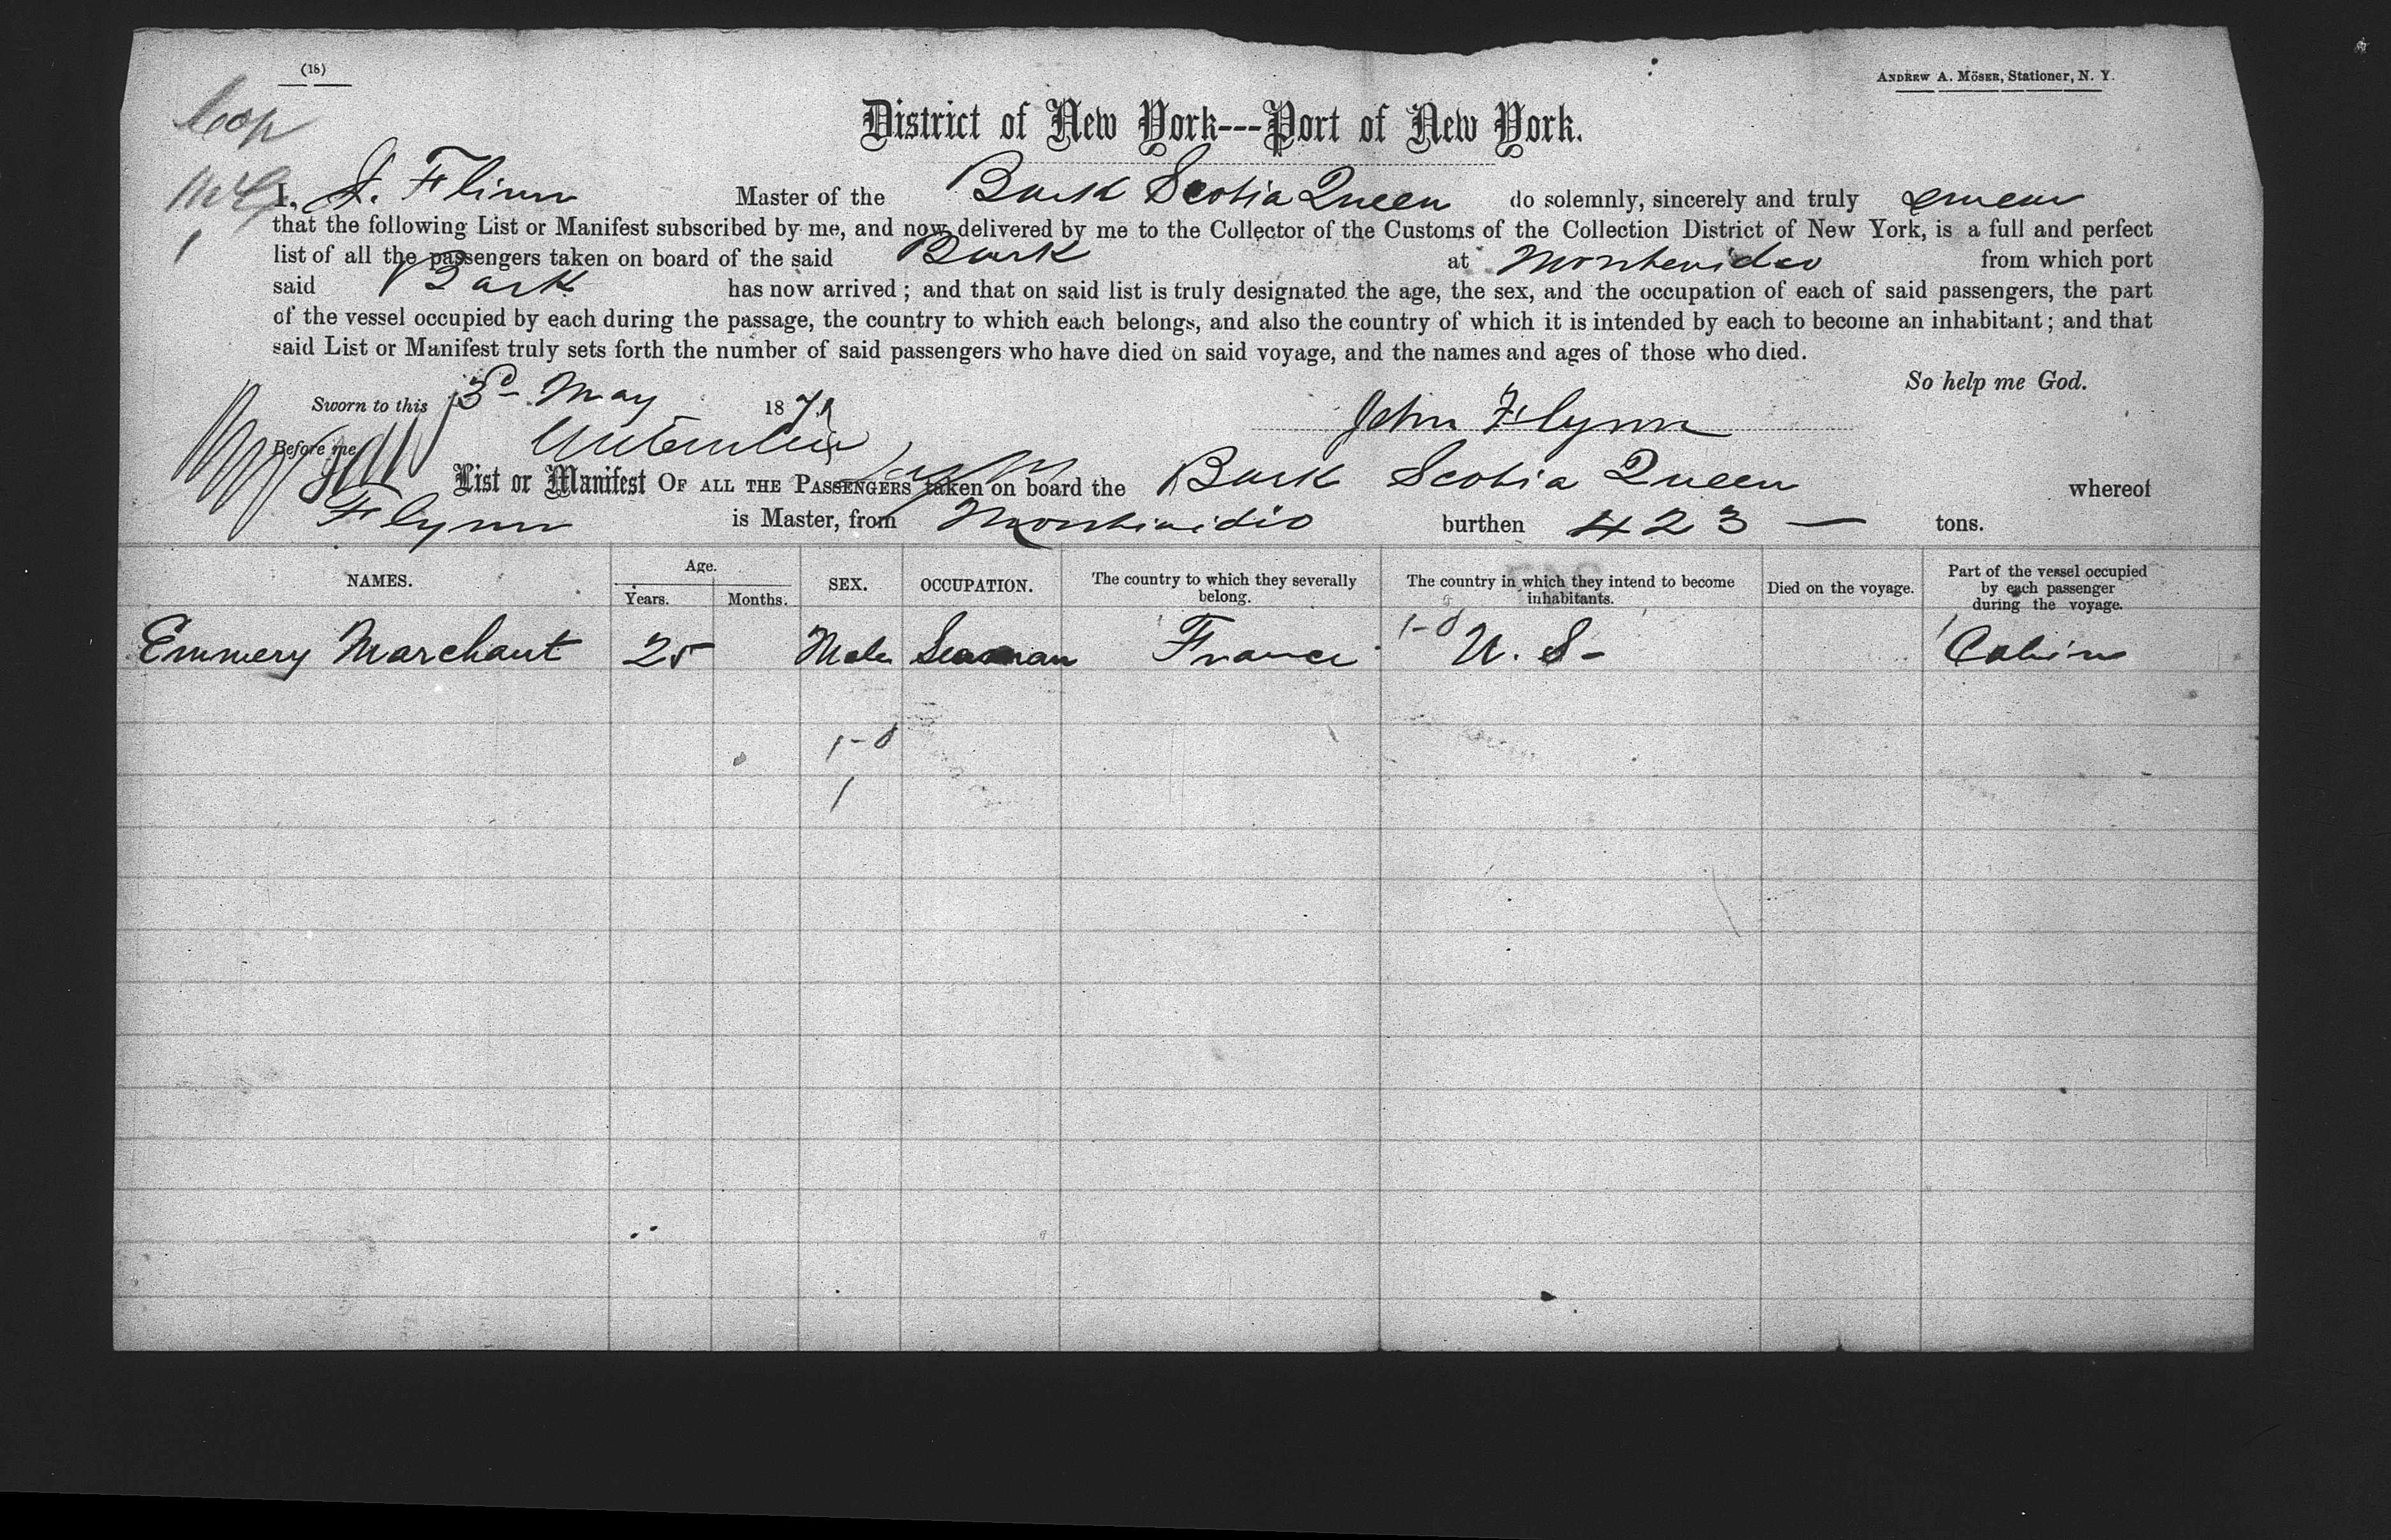 (18)
ANDREW A. MÖSER, Stationer, N. Y.
Cop
District of New York---Port of New York.
I, J. Flinn Master of the Bark Scotia Queen do solemnly, sincerely and truly swear
that the following List or Manifest subscribed by me, and now delivered by me to the Collector of the Customs of the Collection District of New York, is a full and perfect
list of all the passengers taken on board of the said Bark at Montevideo from which port
said Bark has now arrived; and that on said list is truly designated the age, the sex, and the occupation of each of said passengers, the part
of the vessel occupied by each during the passage, the country to which each belongs, and also the country of which it is intended by each to become an inhabitant; and that
said List or Manifest truly sets forth the number of said passengers who have died on said voyage, and the names and ages of those who died.
So help me God.
Sworn to this 3d May 187
John Flynn
Before me
List or Manifest OF ALL THE PASSENGERS taken on board the Bark Scotia Queen whereof
Flynn is Master, from Montividio burthen 423 — tons.
NAMES. Age. Years. Months. SEX. OCCUPATION. The country to which they severally belong. The country in which they intend to become inhabitants. Died on the voyage. Part of the vessel occupied by each passenger during the voyage.
1-0
Emmery Marchant 25 Male Seaman France U. S- Cabin
1-0
1